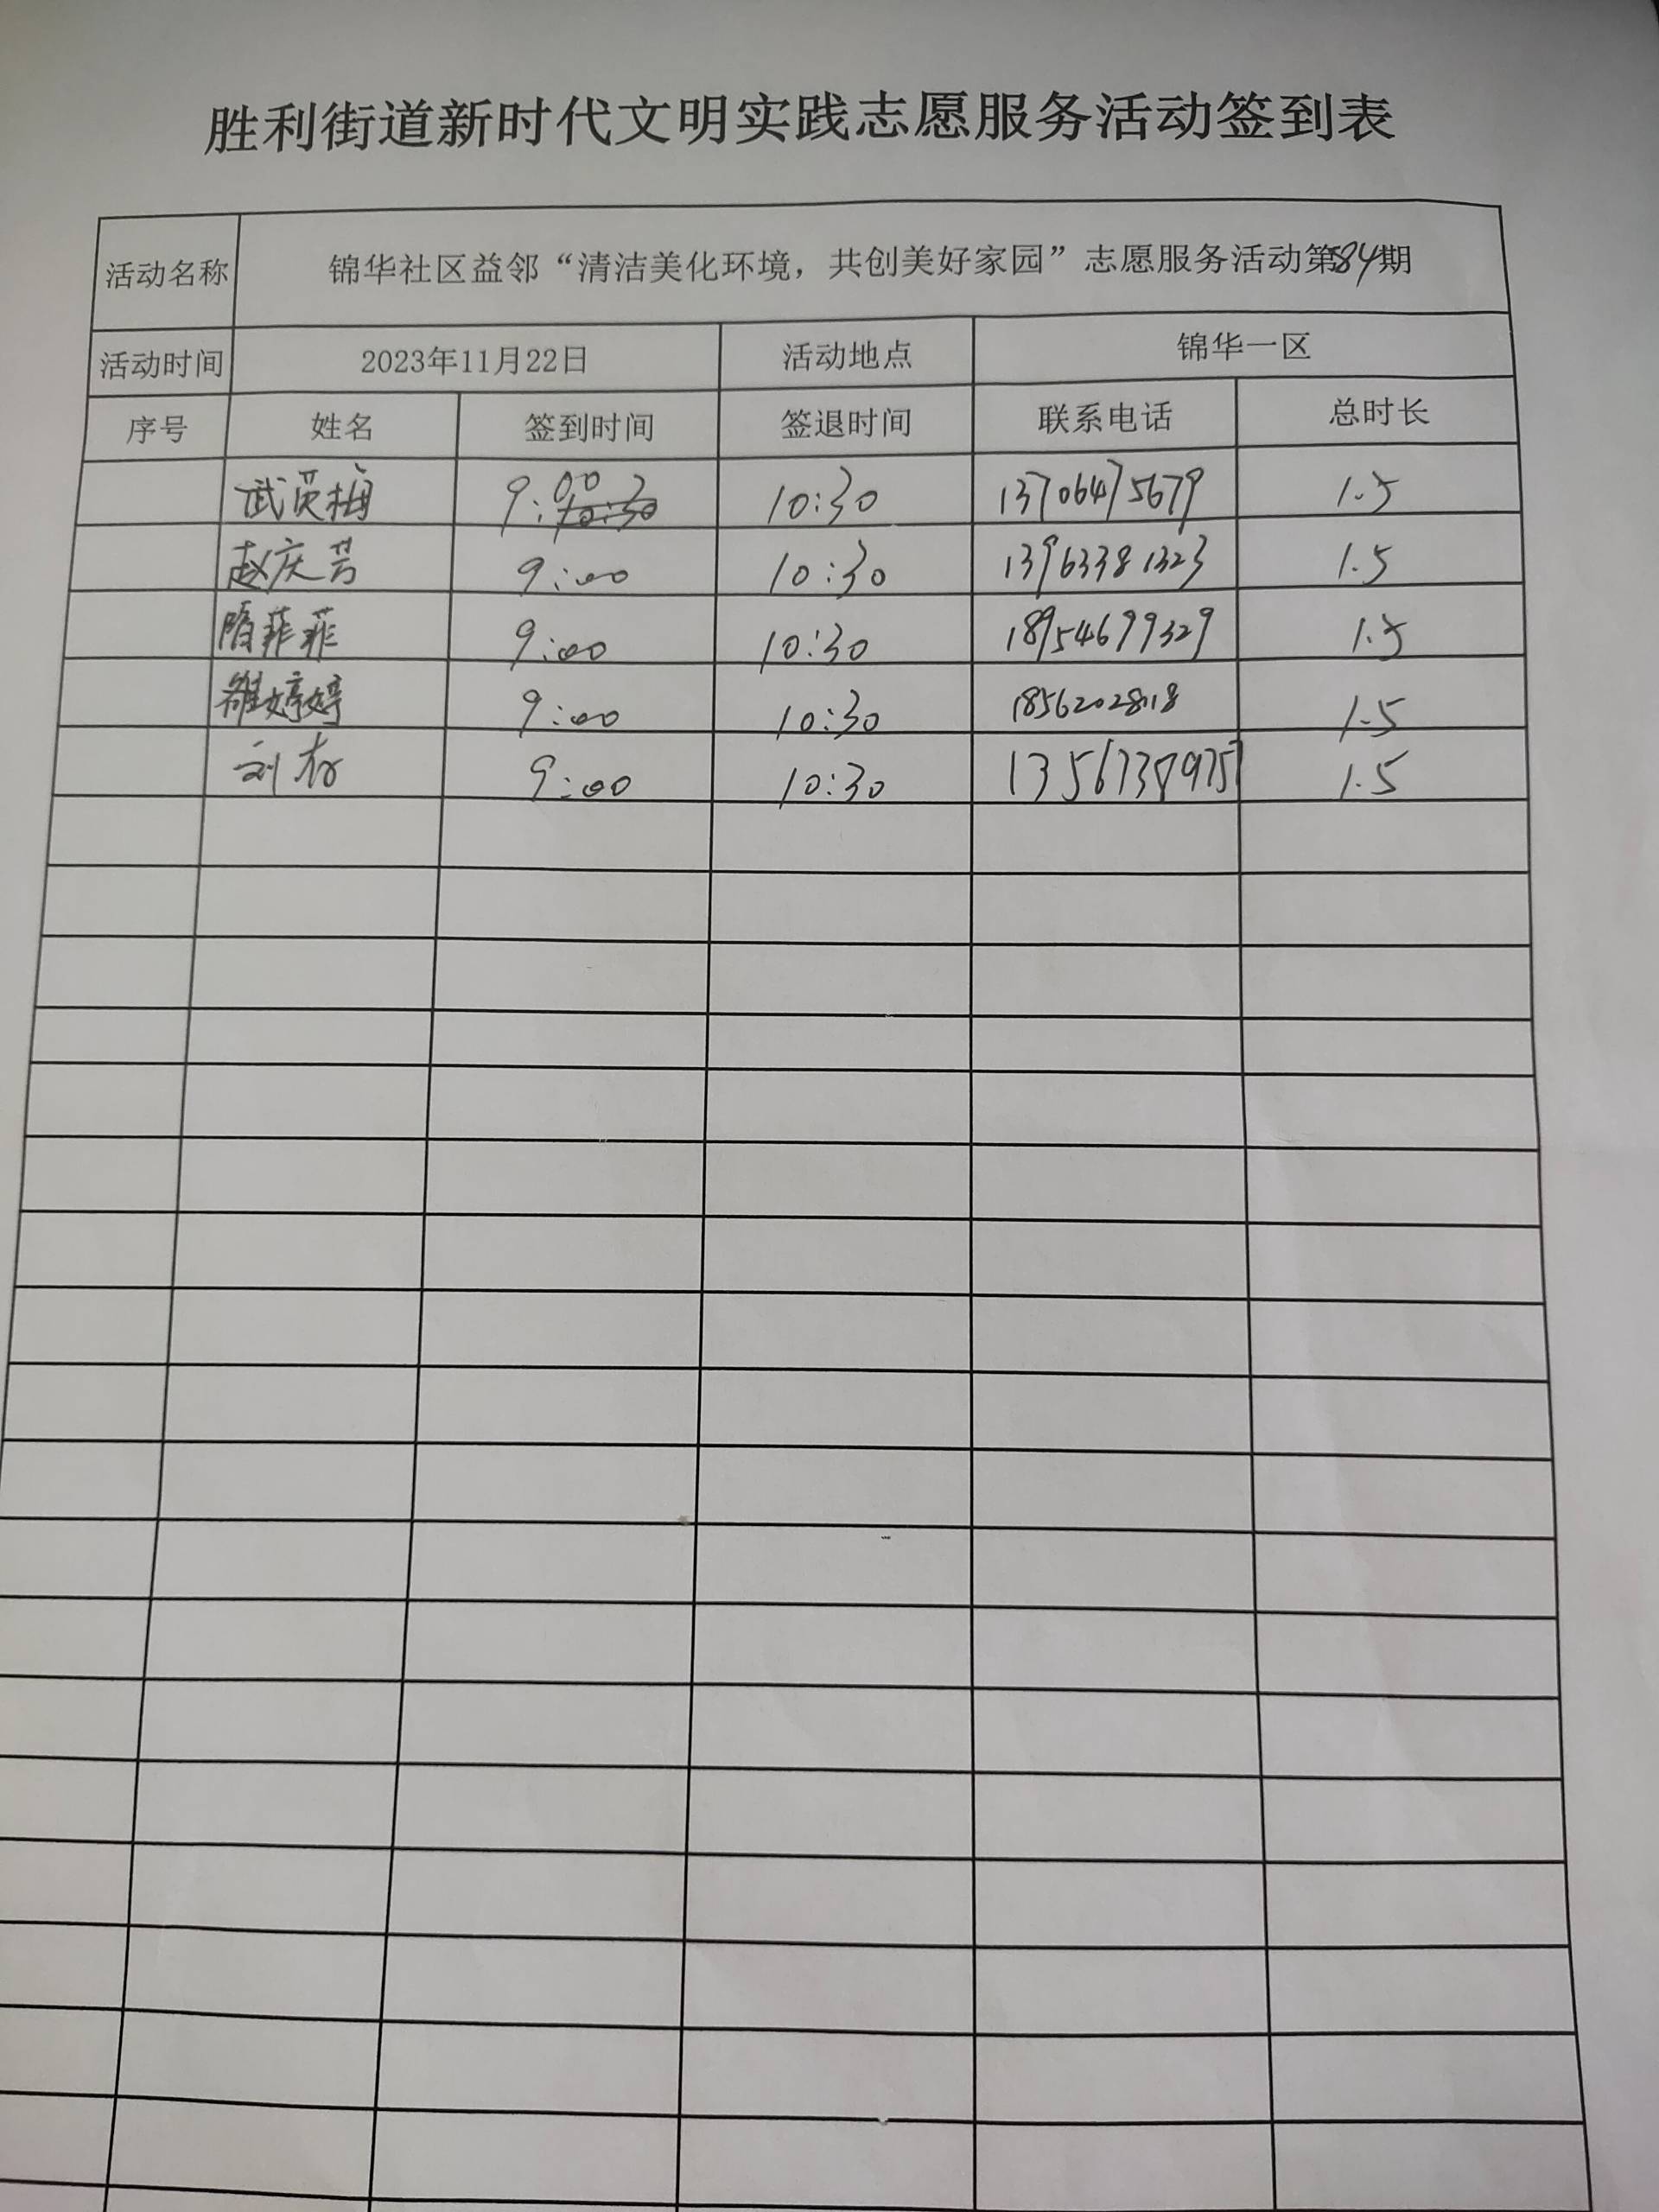 胜利街道新时代文明实践志愿服务活动签到表
活动名称 锦华社区益邻“清洁美化环境，共创美好家园”志愿服务活动第584期
活动时间 2023年11月22日 活动地点 锦华一区
序号 姓名 签到时间 签退时间 联系电话 总时长
武英梅 9:00 10:30 13706475679 1.5
赵庆芳 9:00 10:30 13963381323 1.5
隋菲菲 9:00 10:30 18954699329 1.5
雒婷婷 9:00 10:30 18562028118 1.5
刘存 9:00 10:30 1.5